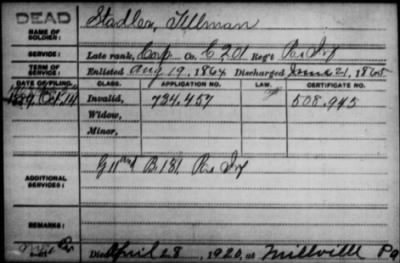 DEAD
NAME OF SOLDIER: Stadler, Tillman
SERVICE: Late rank, Corp Co. C 201 Reg't Pa Inf
TERM OF SERVICE: Enlisted Aug 19, 1864 Discharged June 21, 1865
DATE OF FILING. CLASS. APPLICATION NO. LAW. CERTIFICATE NO.
1889 Oct. 14 Invalid, 734.457 508.945
Widow,
Minor,
ADDITIONAL SERVICES: B 181 Pa Inf
REMARKS:
Died April 28, 1920, at Millville Pa